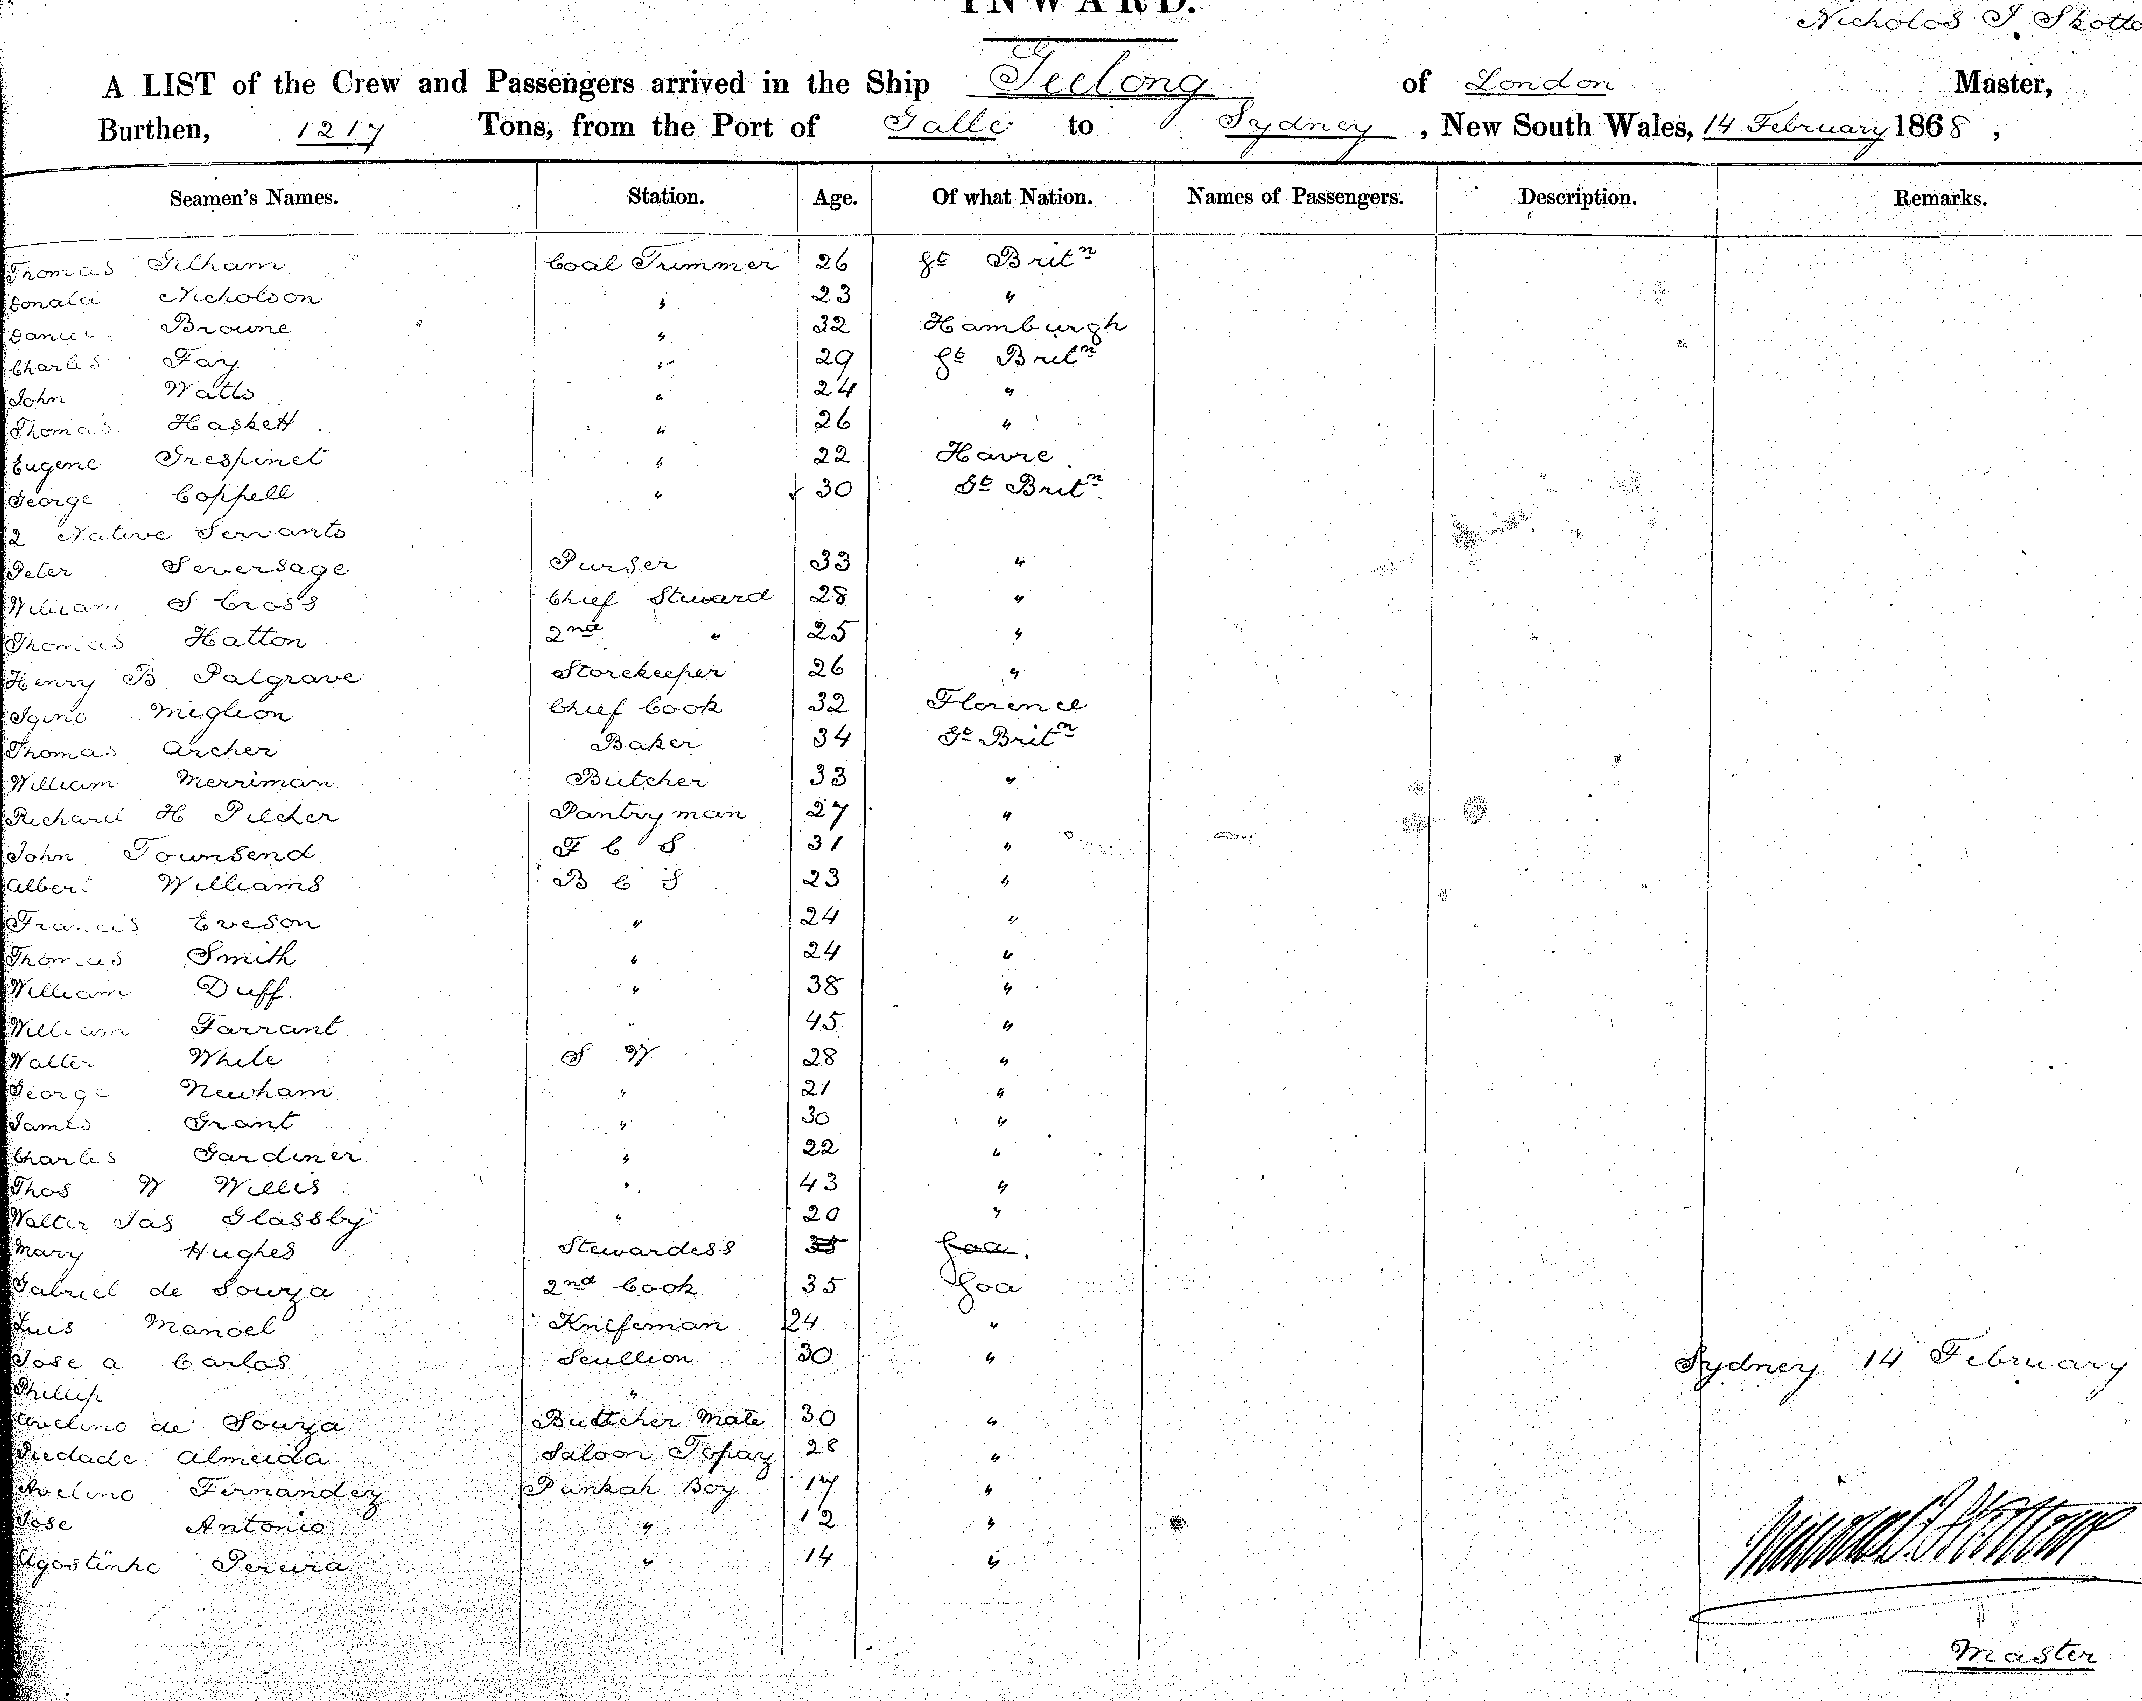 INWARD.
Nicholas J. Skotto
A LIST of the Crew and Passengers arrived in the Ship Geelong of London Master,
Burthen, 1217 Tons, from the Port of Galle to Sydney, New South Wales, 14 February 1868,
Seamen's Names. Station. Age. Of what Nation. Names of Passengers. Description. Remarks.
Thomas Gilham Coal Trimmer 26 Gt Britn
Donald Nicholson " 23 "
Daniel Browne " 32 Hamburgh
Charles Fay " 29 Gt Britn
John Watts " 24 "
Thomas Haskett " 26 "
Eugene Grespinet " 22 Havre
George Coppell " 30 Gt Britn
2 Native Servants
Peter Seversage Purser 33 "
William S Cross Chief Steward 28 "
Thomas Hatton 2nd " 25 "
Henry B Palgrave Storekeeper 26 "
Igino Miglion Chief Cook 32 Florence
Thomas Archer Baker 34 Gt Britn
William Merriman Butcher 33 "
Richard H Pilcher Pantryman 27 "
John Townsend F C S 31 "
Albert Williams B C S 23 "
Francis Eveson " 24 "
Thomas Smith " 24 "
William Duff " 38 "
William Farrant " 45 "
Walter While S W 28 "
George Newham " 21 "
James Grant " 30 "
Charles Gardiner " 22 "
Thos W Willis " 43 "
Walter Jas Glassby " 20 "
Mary Hughes Stewardess 35 Goa.
Gabriel de Souza 2nd Cook 35 Goa
Luis Manoel Knifeman 24 "
Jose a Carlos Scullion 30 "
Sydney 14 February
Phillip "
Avelino de Souza Buttcher Mate 30 "
Piedade Almeida Saloon Topaz 28 "
Avelino Fernandez Punkah Boy 17 "
Jose Antonio " 12 "
Agostinho Pereira " 14 "
Master